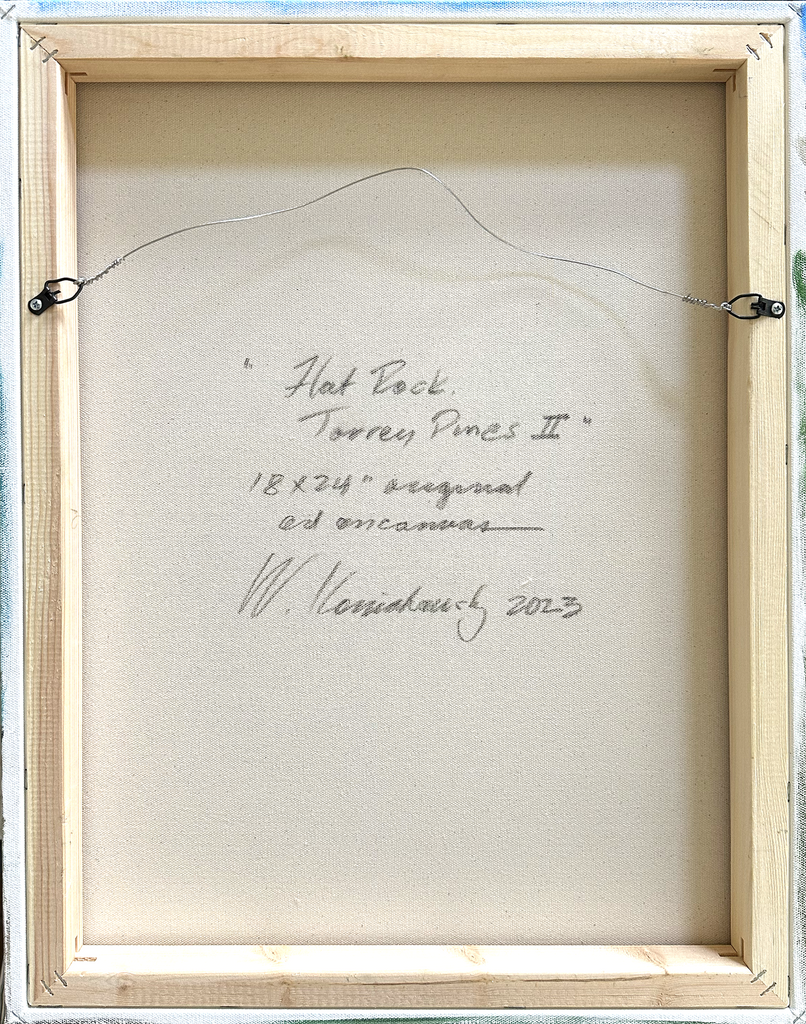 " Flat Rock.
Torrey Pines II "
18 x 24" original
oil on canvas
W. 2023